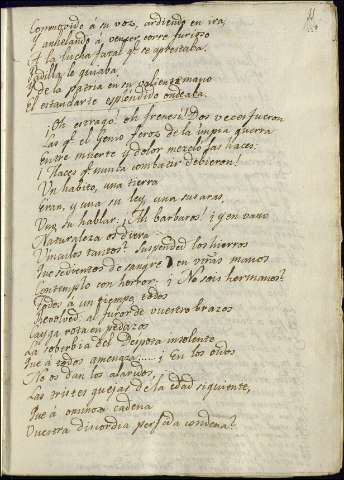 Conmovido á su voz, ardiendo en ira,
Y anhelando á vencer corre furioso
A la lucha fatal qe. se aprestaba.
Padilla le guiaba,
Y de la patria en su valiente mano
El estandarte espléndido ondeaba.
¡Oh estrago! oh frenesi! Dos veces fueron
Las qe. el Genio feroz de la impia guerra
Entre muerte y dolor mezcló las haces:
¡Haces qe. nunca combatir debieron!
Un habito, una tierra
Eran, y una su ley, una sus aras,
Uno su hablar. ¡Ah barbaros! ¿y en vano
Naturaleza os diera
Vinculos tantos? Suspended los hierros
Que sedientos de sangre en vuestras manos
Contemplo con horror: ¿No sois hermanos?
Todos á un tiempo, todos
Revolved: al furor de vuestros brazos
Cayga rota en pedazos
La soberbia del Despota insolente
Que á todos amenaza..... ¿En los oidos
No os dan los alaridos,
Las tristes quejas de la edad siguiente,
Que á ominosa cadena
Vuestra discordia perfida condena?